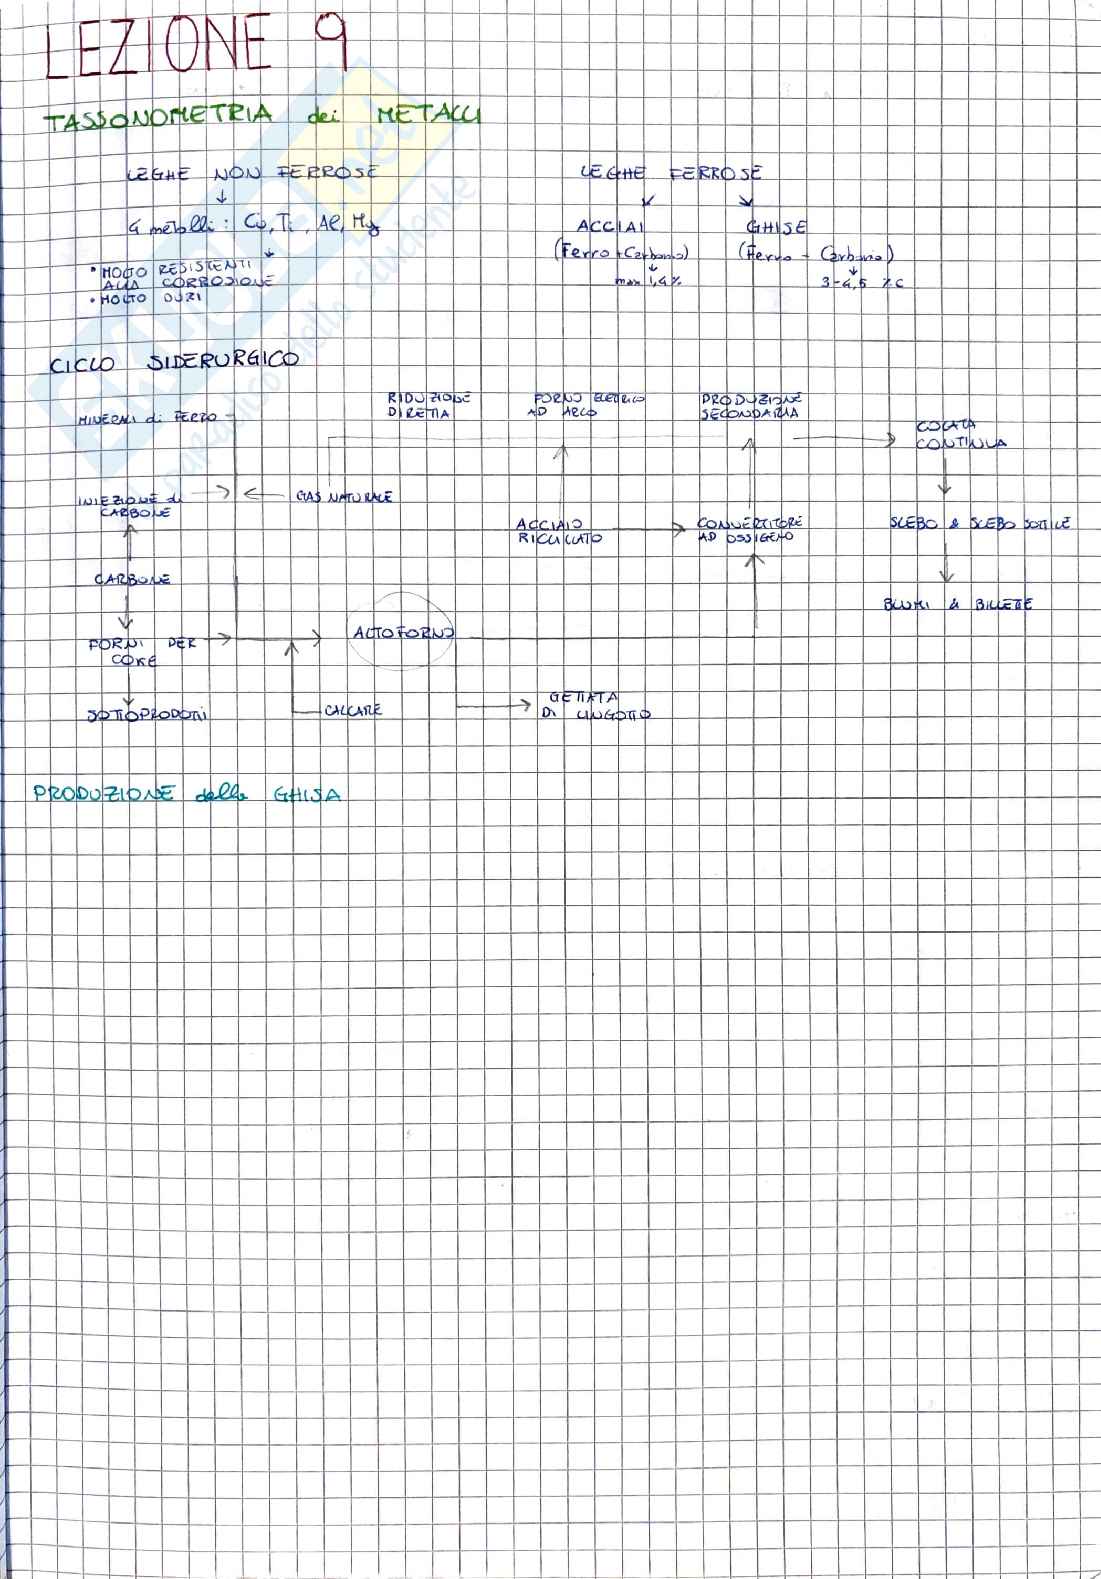 LEZIONE 9
TASSONOMETRIA dei METALLI
LEGHE NON FERROSE
4 metalli: Co, Ti, Al, Mg
• MOLTO RESISTENTI
ALLA CORROSIONE
• MOLTO DURI
LEGHE FERROSE
ACCIAI
(Ferro + Carbonio)
max 1,4%
GHISE
(Ferro - Carbonio)
3-4,5 % C
CICLO SIDERURGICO
MINERALI di FERRO
RIDUZIONE
DIRETTA
FORNO ELETRICO
AD ARCO
PRODUZIONE
SECONDARIA
COLATA
CONTINUA
INIEZIONE di
CARBONE
GAS NATURALE
ACCIAIO
RICICLATO
CONVERTITORE
AD OSSIGENO
SLEBO & SLEBO SOTTILE
CARBONE
BLUMI & BILLETTE
FORNI PER
COKE
ALTOFORNO
SOTTOPRODOTTI
CALCARE
GETTATA
DI LINGOTTO
PRODUZIONE della GHISA